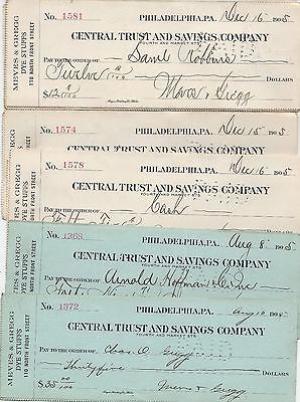 MEVES & GREGG
DYE STUFFS
110 NORTH FRONT STREET
No. 1581 PHILADELPHIA,PA. Dec 16 1905
CENTRAL TRUST AND SAVINGS COMPANY
FOURTH AND MARKET STS.
PAY TO THE ORDER OF Saml Robbins
Twelve DOLLARS
$12 00/100 Meves & Gregg
No. 1574 PHILADELPHIA,PA. Dec 15 1905
No. 1578 PHILADELPHIA,PA. Dec 16 1905
CENTRAL TRUST AND SAVINGS COMPANY
FOURTH AND MARKET STS.
PAY TO THE ORDER OF Cash
MEVES & GREGG
DYE STUFFS
110 NORTH FRONT STREET
No. 1368 PHILADELPHIA,PA. Aug 8 1905
CENTRAL TRUST AND SAVINGS COMPANY
FOURTH AND MARKET STS.
PAY TO THE ORDER OF Arnold Hoffman & Co Inc
MEVES & GREGG
DYE STUFFS
110 NORTH FRONT STREET
No. 1372 PHILADELPHIA,PA. Aug 10 1905
CENTRAL TRUST AND SAVINGS COMPANY
FOURTH AND MARKET STS.
PAY TO THE ORDER OF Chas. O. Gregg
Thirty five DOLLARS
$35 00/100 Meves & Gregg